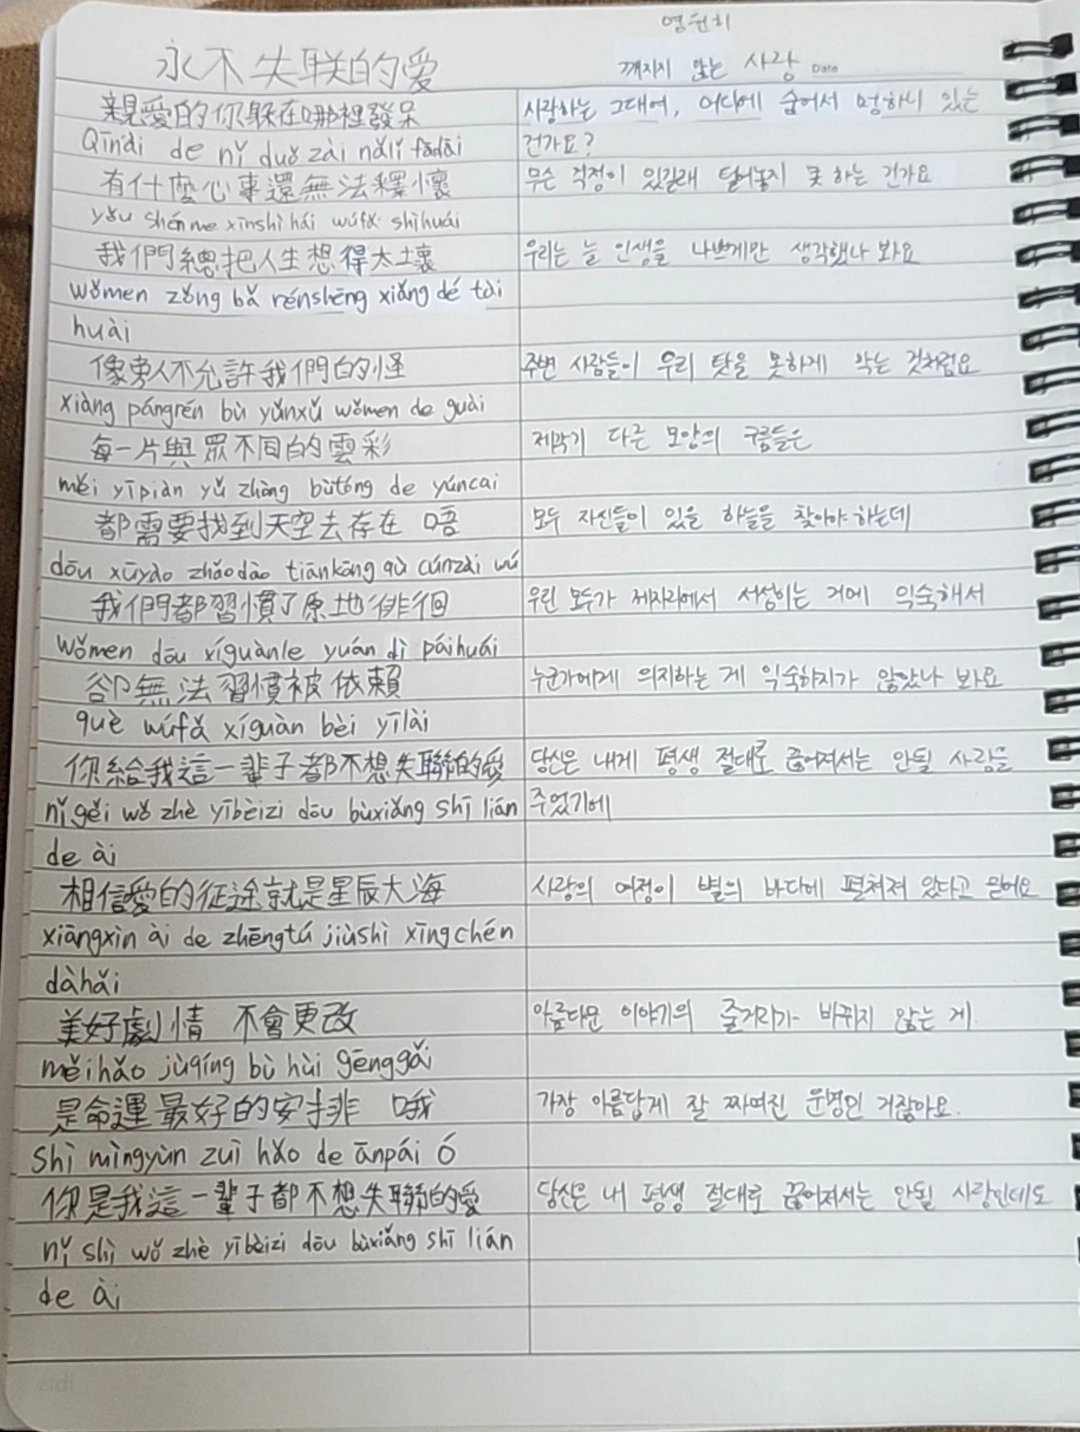 영원히
永不失联的爱
깨지지 않는 사랑 Date
親愛的你躲在哪裡發呆
사랑하는 그대여, 어디에 숨어서 멍하니 있는
Qīn'ài de nǐ duǒ zài nǎlǐ fādāi
건가요?
有什麼心事還無法釋懷
무슨 걱정이 있길래 털어놓지 못 하는 건가요
yǒu shénme xīnshì hái wúfǎ shìhuái
我們總把人生想得太壞
우리는 늘 인생을 나쁘게만 생각했나 봐요
wǒmen zǒng bǎ rénshēng xiǎng dé tài
huài
像旁人不允許我們的怪
주변 사람들이 우리 탓을 못하게 막는 것처럼요
xiàng pángrén bù yǔnxǔ wǒmen de guài
每一片與眾不同的雲彩
제각기 다른 모양의 구름들은
měi yīpiàn yǔ zhòng bùtóng de yúncai
都需要找到天空去存在 唔
모두 자신들이 있을 하늘을 찾아야 하는데
dōu xūyào zhǎodào tiānkōng qù cúnzài wú
我們都習慣了原地徘徊
우린 모두가 제자리에서 서성이는 거에 익숙해서
Wǒmen dōu xíguànle yuán dì páihuái
卻無法習慣被依賴
누군가에게 의지하는 게 익숙하지가 않았나 봐요
què wúfǎ xíguàn bèi yīlài
你給我這一輩子都不想失聯的愛
당신은 내게 평생 절대로 끊어져서는 안될 사랑을
nǐ gěi wǒ zhè yībèizi dōu bùxiǎng shī lián
주었기에
de ài
相信愛的征途就是星辰大海
사랑의 여정이 별의 바다에 펼쳐져 있다고 믿어요
xiāngxìn ài de zhēngtú jiùshì xīngchén
dàhǎi
美好劇情 不會更改
아름다운 이야기의 줄거리가 바뀌지 않는 게
měihǎo jùqíng bù huì gēnggǎi
是命運最好的安排 哦
가장 아름답게 잘 짜여진 운명인 거잖아요.
shì mìngyùn zuì hǎo de ānpái Ó
你是我這一輩子都不想失聯的愛
당신은 내 평생 절대로 끊어져서는 안될 사랑인데도
nǐ shì wǒ zhè yībèizi dōu bùxiǎng shī lián
de ài